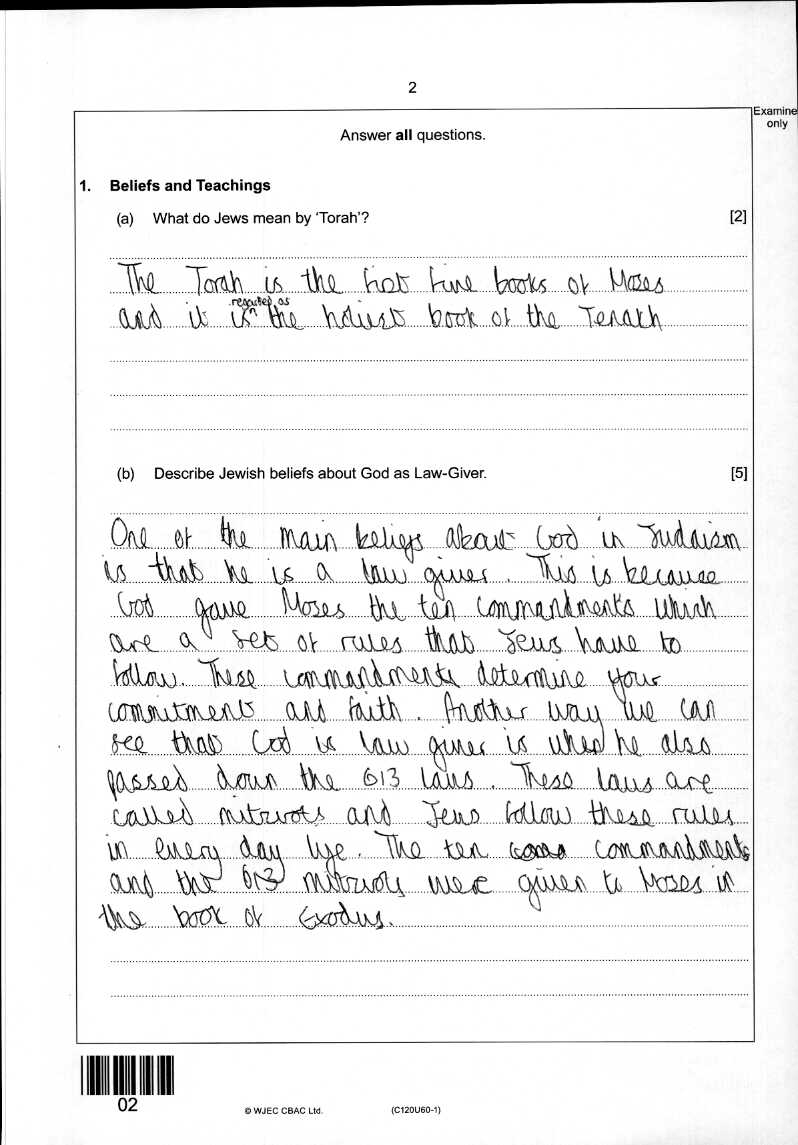 2
Examine
only
Answer all questions.
1. Beliefs and Teachings
(a) What do Jews mean by 'Torah'? [2]
The Torah is the first five books of Moses
regarded as
and it is the holiest book of the Tenakh
(b) Describe Jewish beliefs about God as Law-Giver. [5]
One of the main beliefs about God in Judaism
is that he is a law giver. This is because
God gave Moses the ten commandments which
are a set of rules that Jews have to
follow. These commandments determine your
commitment and faith. Another way we can
see that God is law giver is when he also
passed down the 613 laws. These laws are
called mitzvots and Jews follow these rules
in every day life. The ten commandments
and the 613 mitzvots were given to Moses in
the book of Exodus.
02
© WJEC CBAC Ltd.
(C120U60-1)